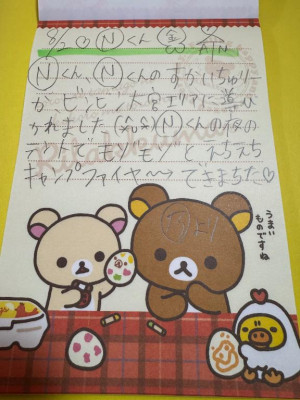 8/2♡Ⓝくん
Ⓝくん、Ⓝくんのすかいちゅりー
がビンビン大宮エリアに導び
かれましたⓃくんの夜の
テントでモゾモゾとえちえち
キャンプファイヤー〜→できまちた♡
うまい
ものですね